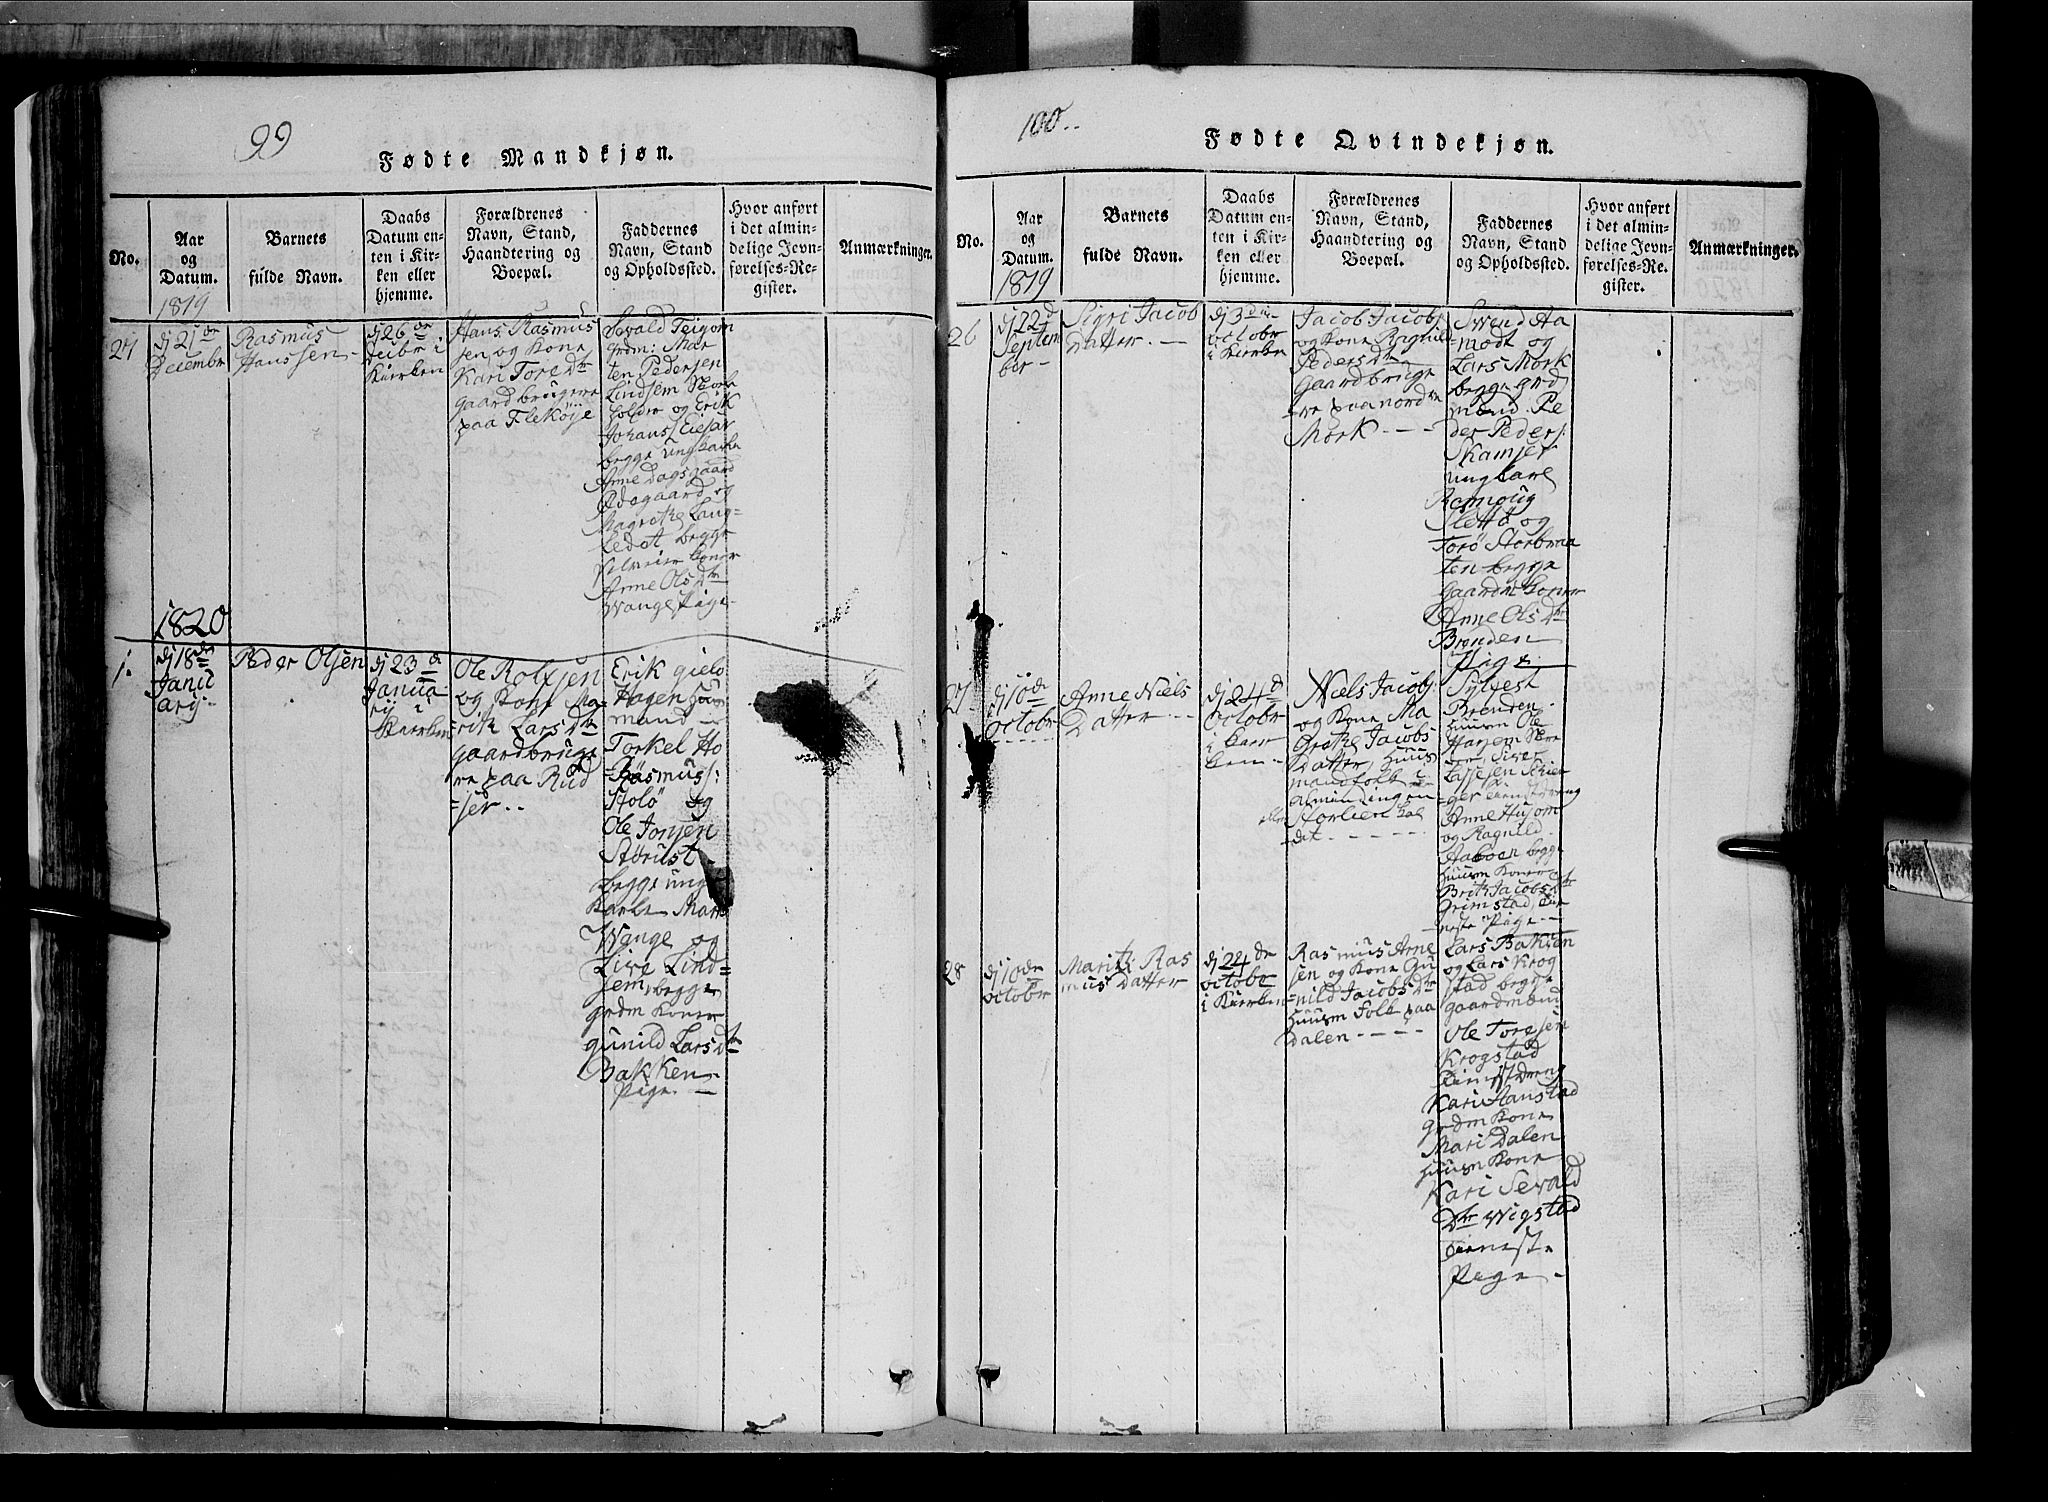 99
Fødte Mandkjøn.
No.
Aar
og
Datum.
1819
Barnets
fulde Navn.
Daabs
Datum en-
ten i Kir-
ken eller
hjemme.
Forældrenes
Navn, Stand,
Haandtering og
Boepæl.
Faddernes
Navn, Stand
og Opholdssted.
Hvor anført
i det almin-
delige Jevn-
førelses-Re-
gister.
Anmærkninger.
27
dj 21de
Decembr
Rasmus
Hanssen
dj 26de
Decbr i
Kierken
Hans Rasmus
sen og Kone
Kari Tore Dtr
gaardbrugere
paa Flekøye
Sevald Teigom
Grdm: Mar
ten Pedersen
Lindsem
og Erik
Johans:
begge ungkarle
Anne Dagsgaard
Ødegaard og
Magrethe Laug
ledet begge
Koner
Anne Ols Dtr
Wange Pige
1820
1.
dj 18de
Janu
arij
Peder Olsen
dj 23de
Janua
rij i
Kierken
Ole Rolfsen
og Kone Ma
rith Lars Dtr
gaardbruge
re paa Rød
sjer
Erik gielo
Hagen Huus
mand
Torkel Ho
Rasmuss:
Stolø og
Ole Jonsen
Størust
begge ung
karle Mari
Wange og
Live Lind=
sem begge
grdm koner
gunild Lars Dtr
Bakken
Pige
100
Fødte Qvindekjøn.
No.
Aar
og
Datum.
1819
Barnets
fulde Navn.
Daabs
Datum en-
ten i Kir-
ken eller
hjemme.
Forældrenes
Navn, Stand,
Haandtering og
Boepæl.
Faddernes
Navn, Stand
og Opholdssted.
Hvor anført
i det almin-
delige Jevn-
førelses-Re-
gister.
Anmærkninger.
26
dj 22d
Septem
ber
Sigri Jacob
Datter
dj 3die
octobr
i Kierken
Jacob Jacobs:
og kone Ragnild
Peders Dtr
gaardbruge
re paa nordre
Mork
Swend Aa
modt og
Lars Mork
begge grd
mænd Pe
der Peders:
Skamser
ungkarl
Rannoug
Slettø og
Torø Storbraa
ten begge
gaardm koner
Anne Ols Dtr
Brenden
Pige
27
dj 10de
octobr
Anne Niels
Datter
dj 24d
octobr
i Kier
ken
Niels Jacobs:
og Kone Ma
Grethe Jacobs
Datter, Huus
mandfolk i
almindingen
eller Storlien kal
det
Sylfest
Brenden
huusm Ole
Lassesen
Anne Husom
og Ragnild
Aaboen begge
huusm koner
Brit Jacobs Dtr
Grimstad, tie
neste Pige
28
dj 10de
octobr
Marith Ras
mus Datter
dj 24de
octobr
i Kierken
Rasmus Arne
sen og kone Gu
nild Jacobs Dtr
huusm Folk paa
Dalen
Lars Bakken
og Lars Krog
stad begge
gaardmænd
Ole Toresen
Krogstad
tienstdreng
Kari Hanstad
grdm kone
Mari Dalen
huusm kone
Kari Sevald
Dtr Wigstad
tieneste
Pige